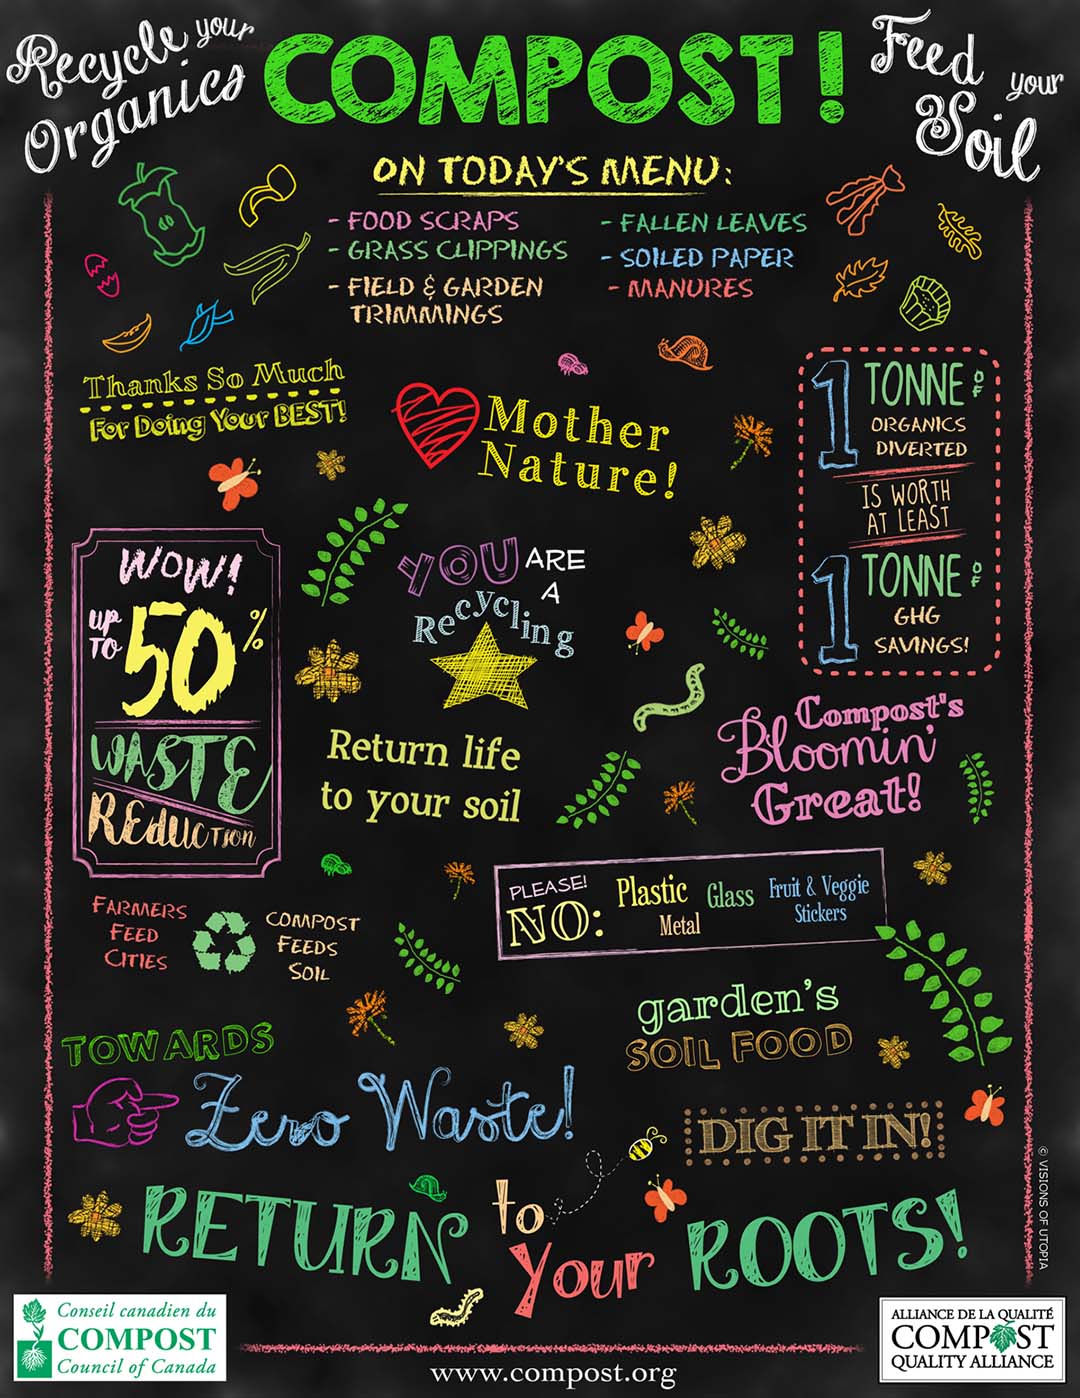 Recycle your
Organics
COMPOST!
Feed your
Soil
ON TODAY'S MENU:
- FOOD SCRAPS
- GRASS CLIPPINGS
- FIELD & GARDEN
TRIMMINGS
- FALLEN LEAVES
- SOILED PAPER
- MANURES
Thanks So Much
For Doing Your BEST!
Mother
Nature!
1 TONNE OF
ORGANICS
DIVERTED
IS WORTH
AT LEAST
1 TONNE OF
GHG
SAVINGS!
WOW!
UP TO 50%
WASTE
REDUCTION
YOU ARE
A
Recycling
Return life
to your soil
Compost's
Bloomin'
Great!
PLEASE!
NO:
Plastic
Metal
Glass
Fruit & Veggie
Stickers
FARMERS
FEED
CITIES
COMPOST
FEEDS
SOIL
garden's
SOIL FOOD
TOWARDS
Zero Waste!
DIG IT IN!
RETURN to Your ROOTS!
© VISIONS OF UTOPIA
Conseil canadien du
COMPOST
Council of Canada
www.compost.org
ALLIANCE DE LA QUALITÉ
COMPOST
QUALITY ALLIANCE